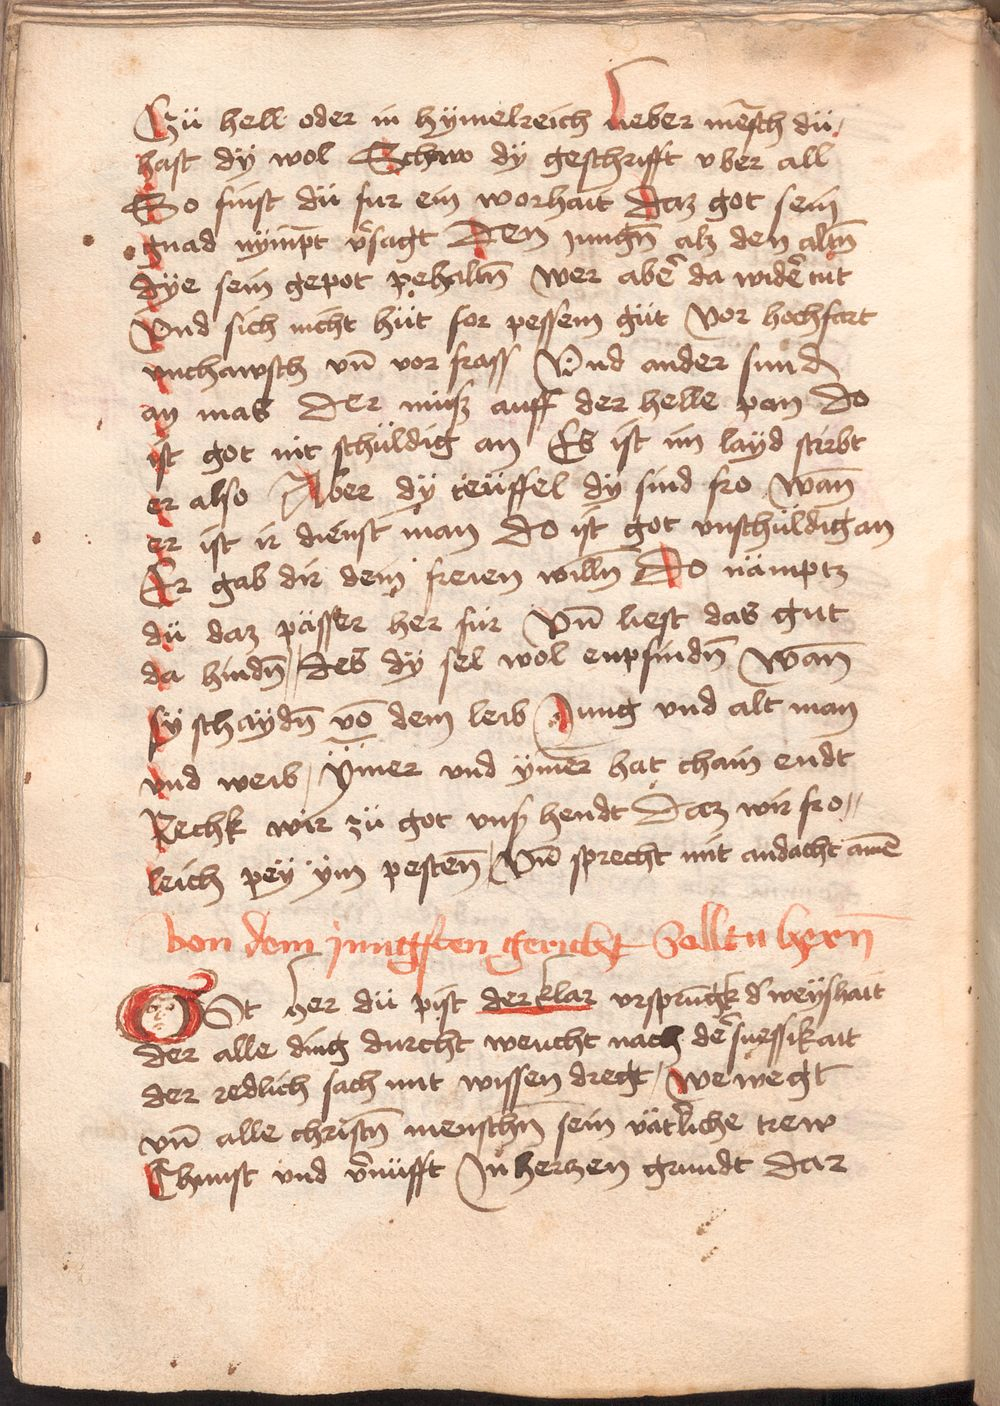 Zü hell oder in hymelreich lieber mēsch dü
hast dÿ wol Schaw dÿ geschrifft vber all
So finst dü fur ein worhait Daz got sein
gnad nÿmpt v̉sagt Den Jungn̄ alz den altn̄
dÿe sein gepot pehaltn̄ Wer aber̉ da wider̉ tut
Vnd sich nicht hüt for pessem güt Vor hochfart
vnchawsch vn̄ vor frass Vnd ander sund
an mas Der müsz auff der helle pan Do
ist got nit schüldig an Es ist im layd stirbt
er also Aber dÿ teüffel dÿ sind fro Wan̄
er ist ir dienst man Do ist got vnschüldig an
Er gab dir dein freien willn̄ Do nämptz
dü daz pässer her für Vn̄ liest das gut
da hindn̄ / des dÿ sel wol enpfindn̄ Wan̄
sÿ schaÿdn̄ vō dem leib Jung vnd alt man
vnd weib / Ÿmer vnd ÿmer hat chain endt
Rechk wir zü got vnsz hendt Daz wir fro//
leich peÿ ÿm pesten̄ / Vn̄ sprecht mit andacht amē
Von dem Jungsten gericht Solltu hern̄
GOt her dü pist der klar vrsprūgk d̉ weÿshait
der alle ding durcht weucht nach der̉ suessikait
der redlich sach mit wissen dregt / we wegt
vn̄ alle christn̄ menschn̄ sein vätterliche trew
Chunst vnd v̉nüfft In herzen grundt dar